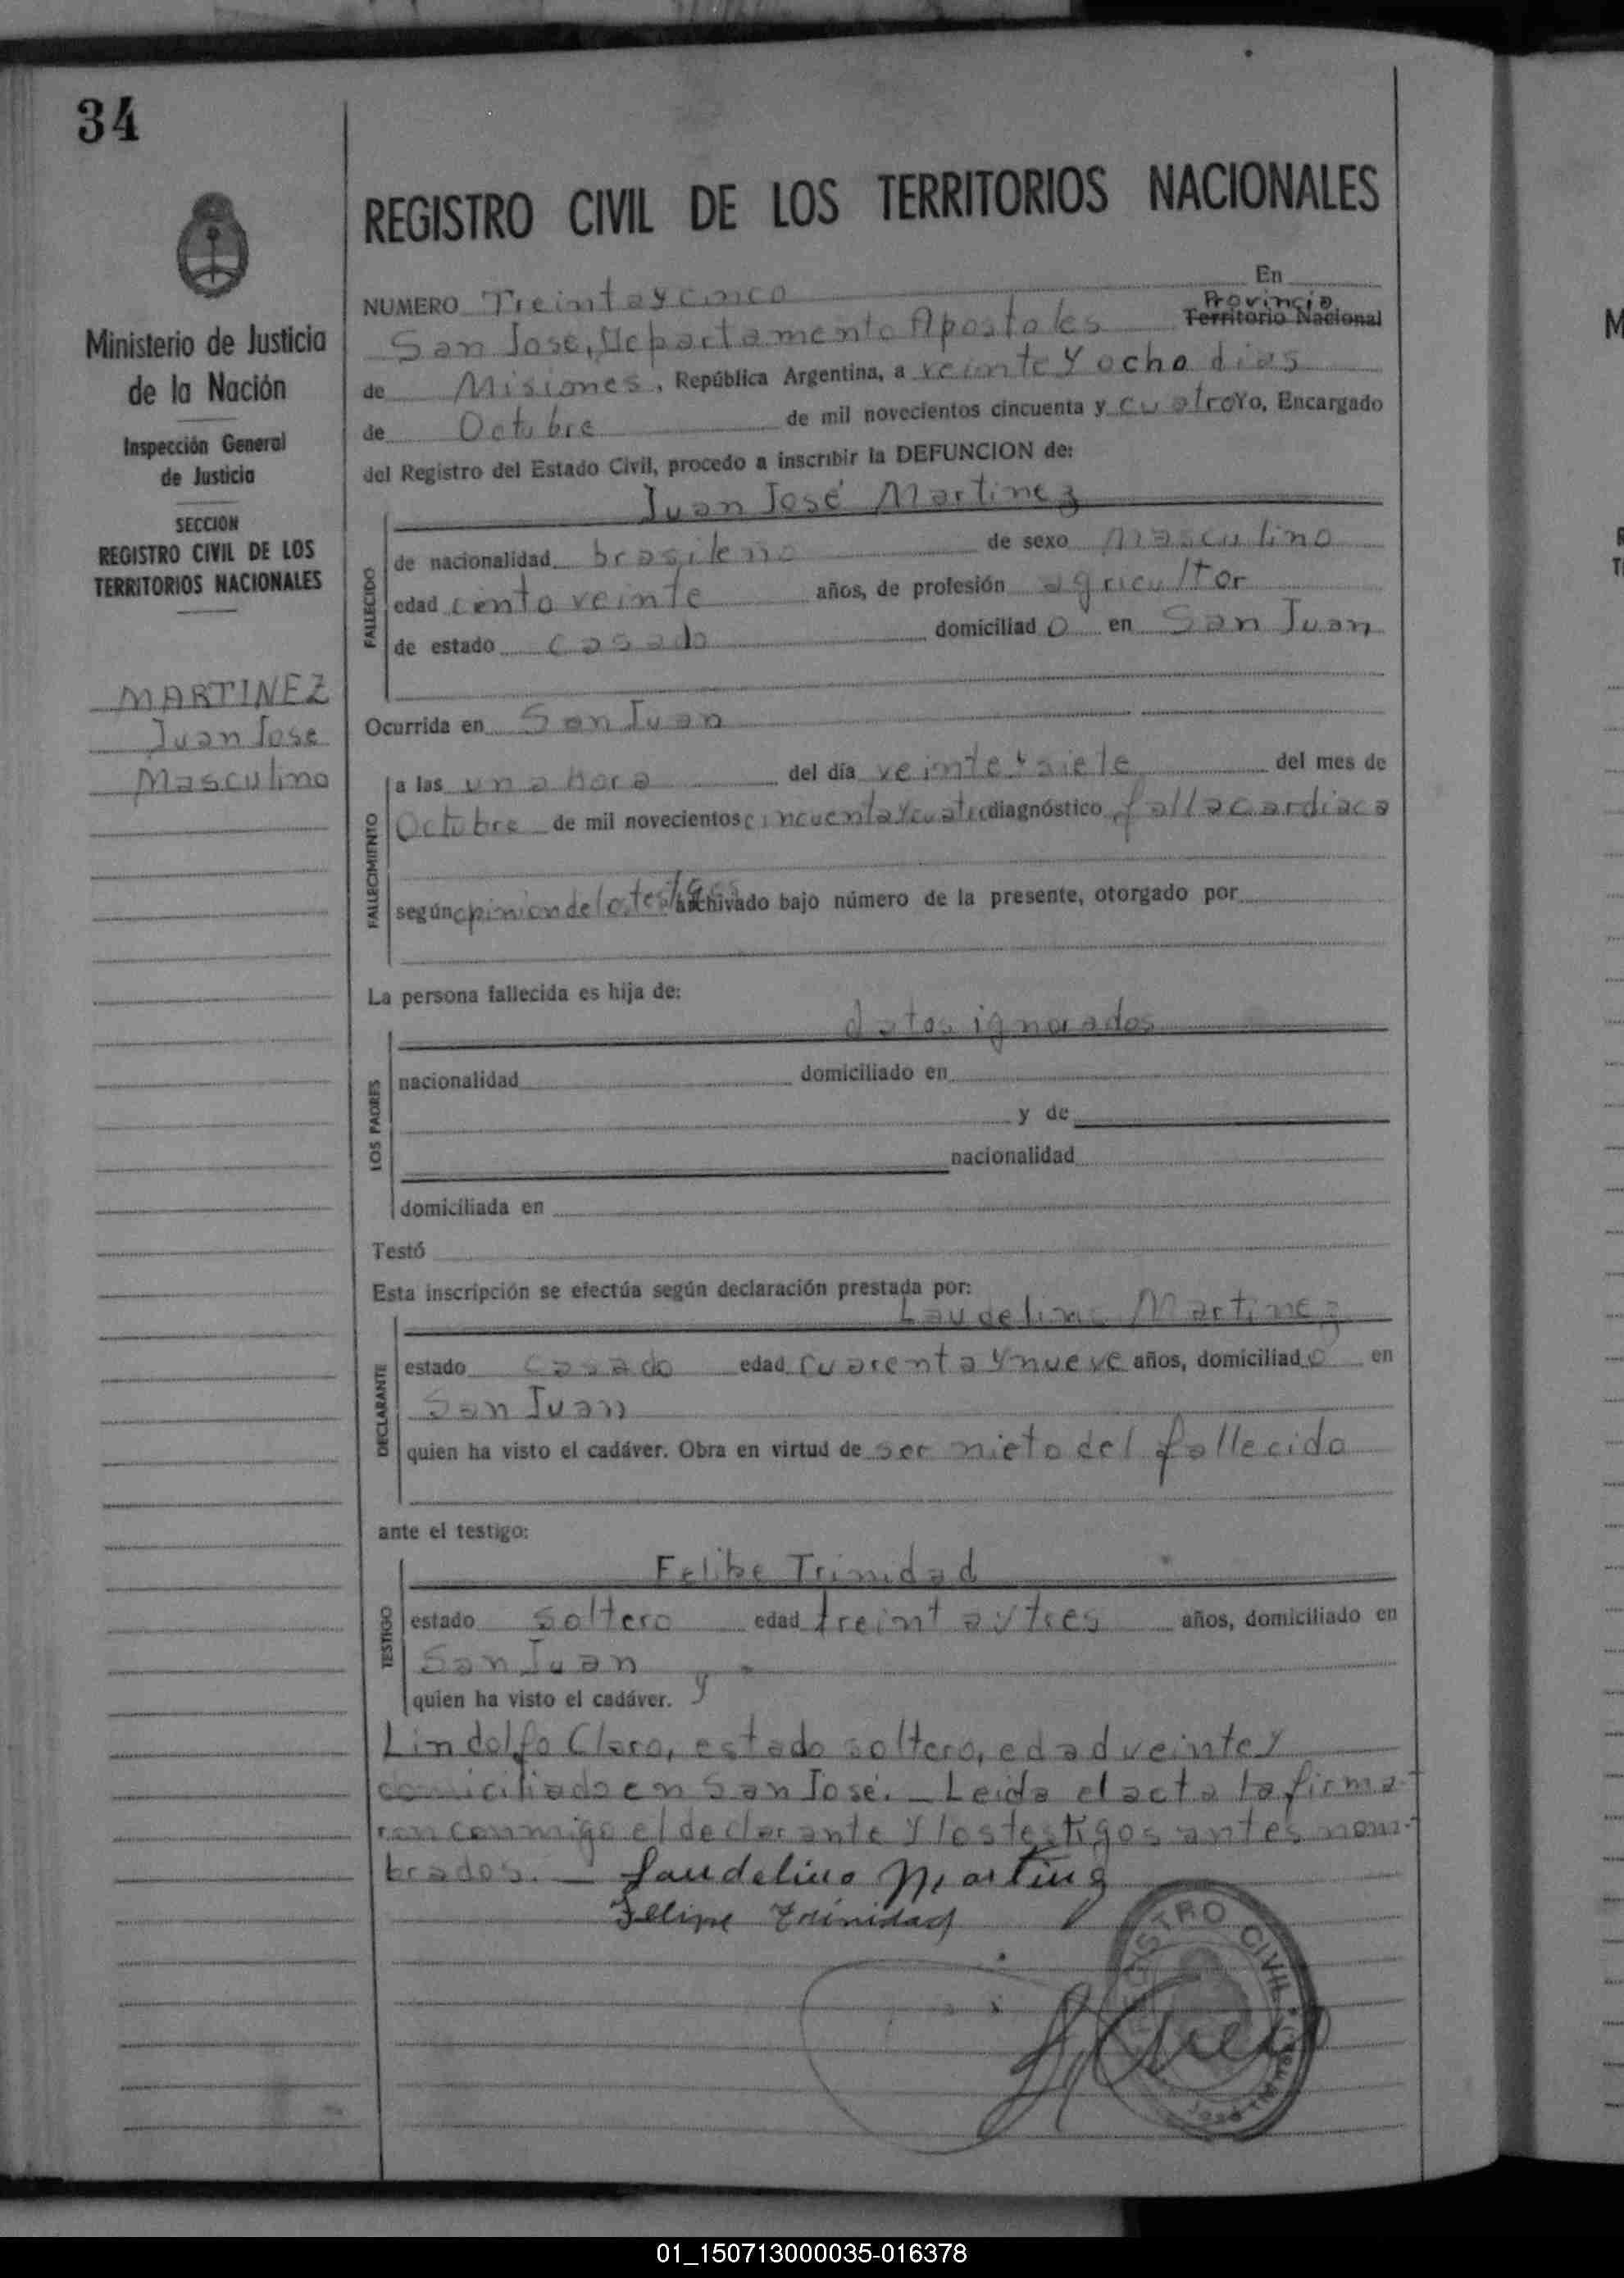 34
REGISTRO CIVIL DE LOS TERRITORIOS NACIONALES
Ministerio de Justicia
de la Nación
Inspección General
de Justicia
SECCION
REGISTRO CIVIL DE LOS
TERRITORIOS NACIONALES
MARTINEZ
Juan Jose
Masculino
En
NUMERO Treinta y cinco
Provincia
San José, Departamento Apostoles Territorio Nacional
de Misiones, República Argentina, a veinte y ocho dias
de Octubre de mil novecientos cincuenta y cuatro Yo, Encargado
del Registro del Estado Civil, procedo a inscribir la DEFUNCION de:
Juan José Martinez
FALLECIDO
de nacionalidad brasileño de sexo masculino
edad ciento veinte años, de profesión agricultor
de estado casado domiciliad o en San Juan
Ocurrida en San Juan
FALLECIMIENTO
a las una hora del día veinte y siete del mes de
Octubre de mil novecientos cincuenta y cuatro diagnóstico falla cardiaca
según opinion de los testigos archivado bajo número de la presente, otorgado por
La persona fallecida es hija de:
datos ignorados
LOS PADRES
nacionalidad domiciliado en
y de
nacionalidad
domiciliada en
Testó
Esta inscripción se efectúa según declaración prestada por:
Laudelino Martinez
DECLARANTE
estado casado edad cuarenta y nueve años, domiciliad o en
San Juan
quien ha visto el cadáver. Obra en virtud de ser nieto del fallecido
ante el testigo:
Felipe Trinidad
TESTIGO
estado soltero edad treinta y tres años, domiciliado en
San Juan
quien ha visto el cadáver. y
Lindolfo Claro, estado soltero, edad veinte y
domiciliado en San José. - Leida el acta la firma-
ron conmigo el declarante y los testigos antes nom-
brados. - Laudelino Martinz
Felipe Trinidad
REGISTRO CIVIL
01_150713000035-016378